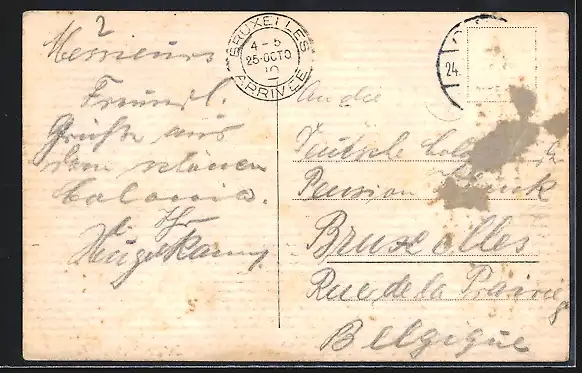 2
Messieurs
Freundl.
Grüße aus
dem schönen
Colonia.
Ihr
BRUXELLES
4 - 5
25·OCTO
10
ARRIVEE
24.
An die
Deutsche
Pension
Bruxelles
Rue de la Prairie
Belgique